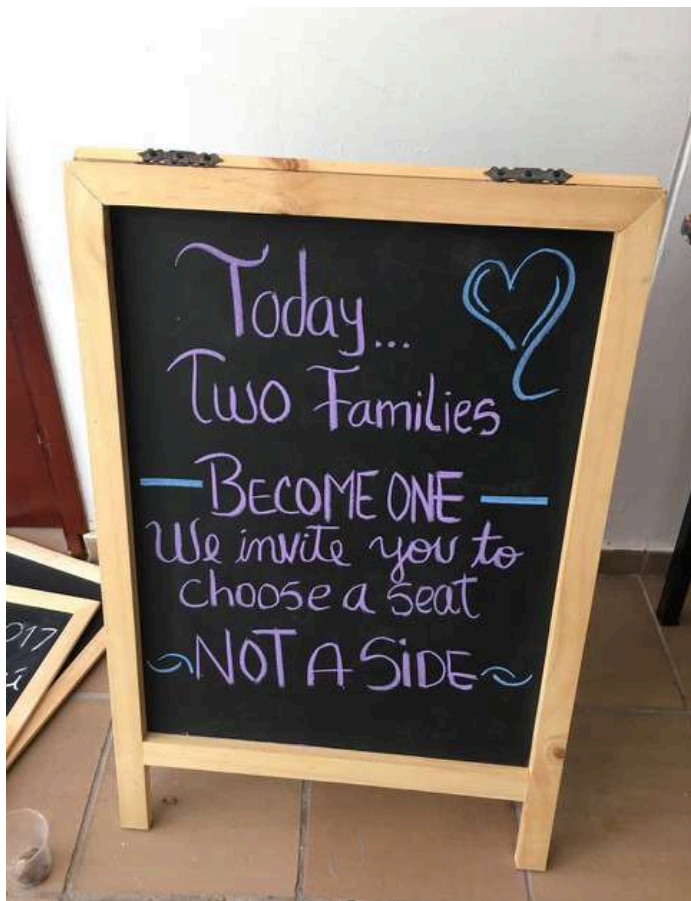 Today...
Two Families
BECOME ONE
We invite you to
choose a seat
NOT A SiDE
017